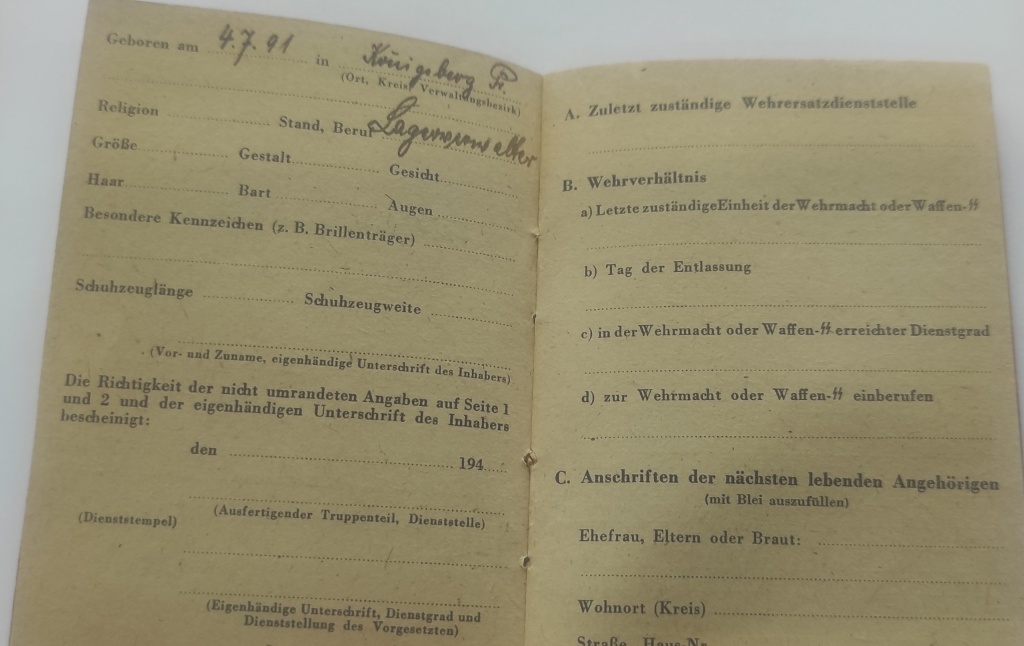 Geboren am 4.7.91 in Königsberg Pr.
(Ort, Kreis, Verwaltungsbezirk)
Religion Stand, Beruf Lagerverwalter
Größe Gestalt Gesicht
Haar Bart Augen
Besondere Kennzeichen (z. B. Brillenträger)
Schuhzeuglänge Schuhzeugweite
(Vor- und Zuname, eigenhändige Unterschrift des Inhabers)
Die Richtigkeit der nicht umrandeten Angaben auf Seite 1
und 2 und der eigenhändigen Unterschrift des Inhabers
bescheinigt:
den 194
(Ausfertigender Truppenteil, Dienststelle)
(Dienststempel)
(Eigenhändige Unterschrift, Dienstgrad und
Dienststellung des Vorgesetzten)
A. Zuletzt zuständige Wehrersatzdienststelle
B. Wehrverhältnis
a) Letzte zuständige Einheit der Wehrmacht oder Waffen-ᛋᛋ
b) Tag der Entlassung
c) in der Wehrmacht oder Waffen-ᛋᛋ erreichter Dienstgrad
d) zur Wehrmacht oder Waffen-ᛋᛋ einberufen
C. Anschriften der nächsten lebenden Angehörigen
(mit Blei auszufüllen)
Ehefrau, Eltern oder Braut:
Wohnort (Kreis)
Straße, Haus-Nr.